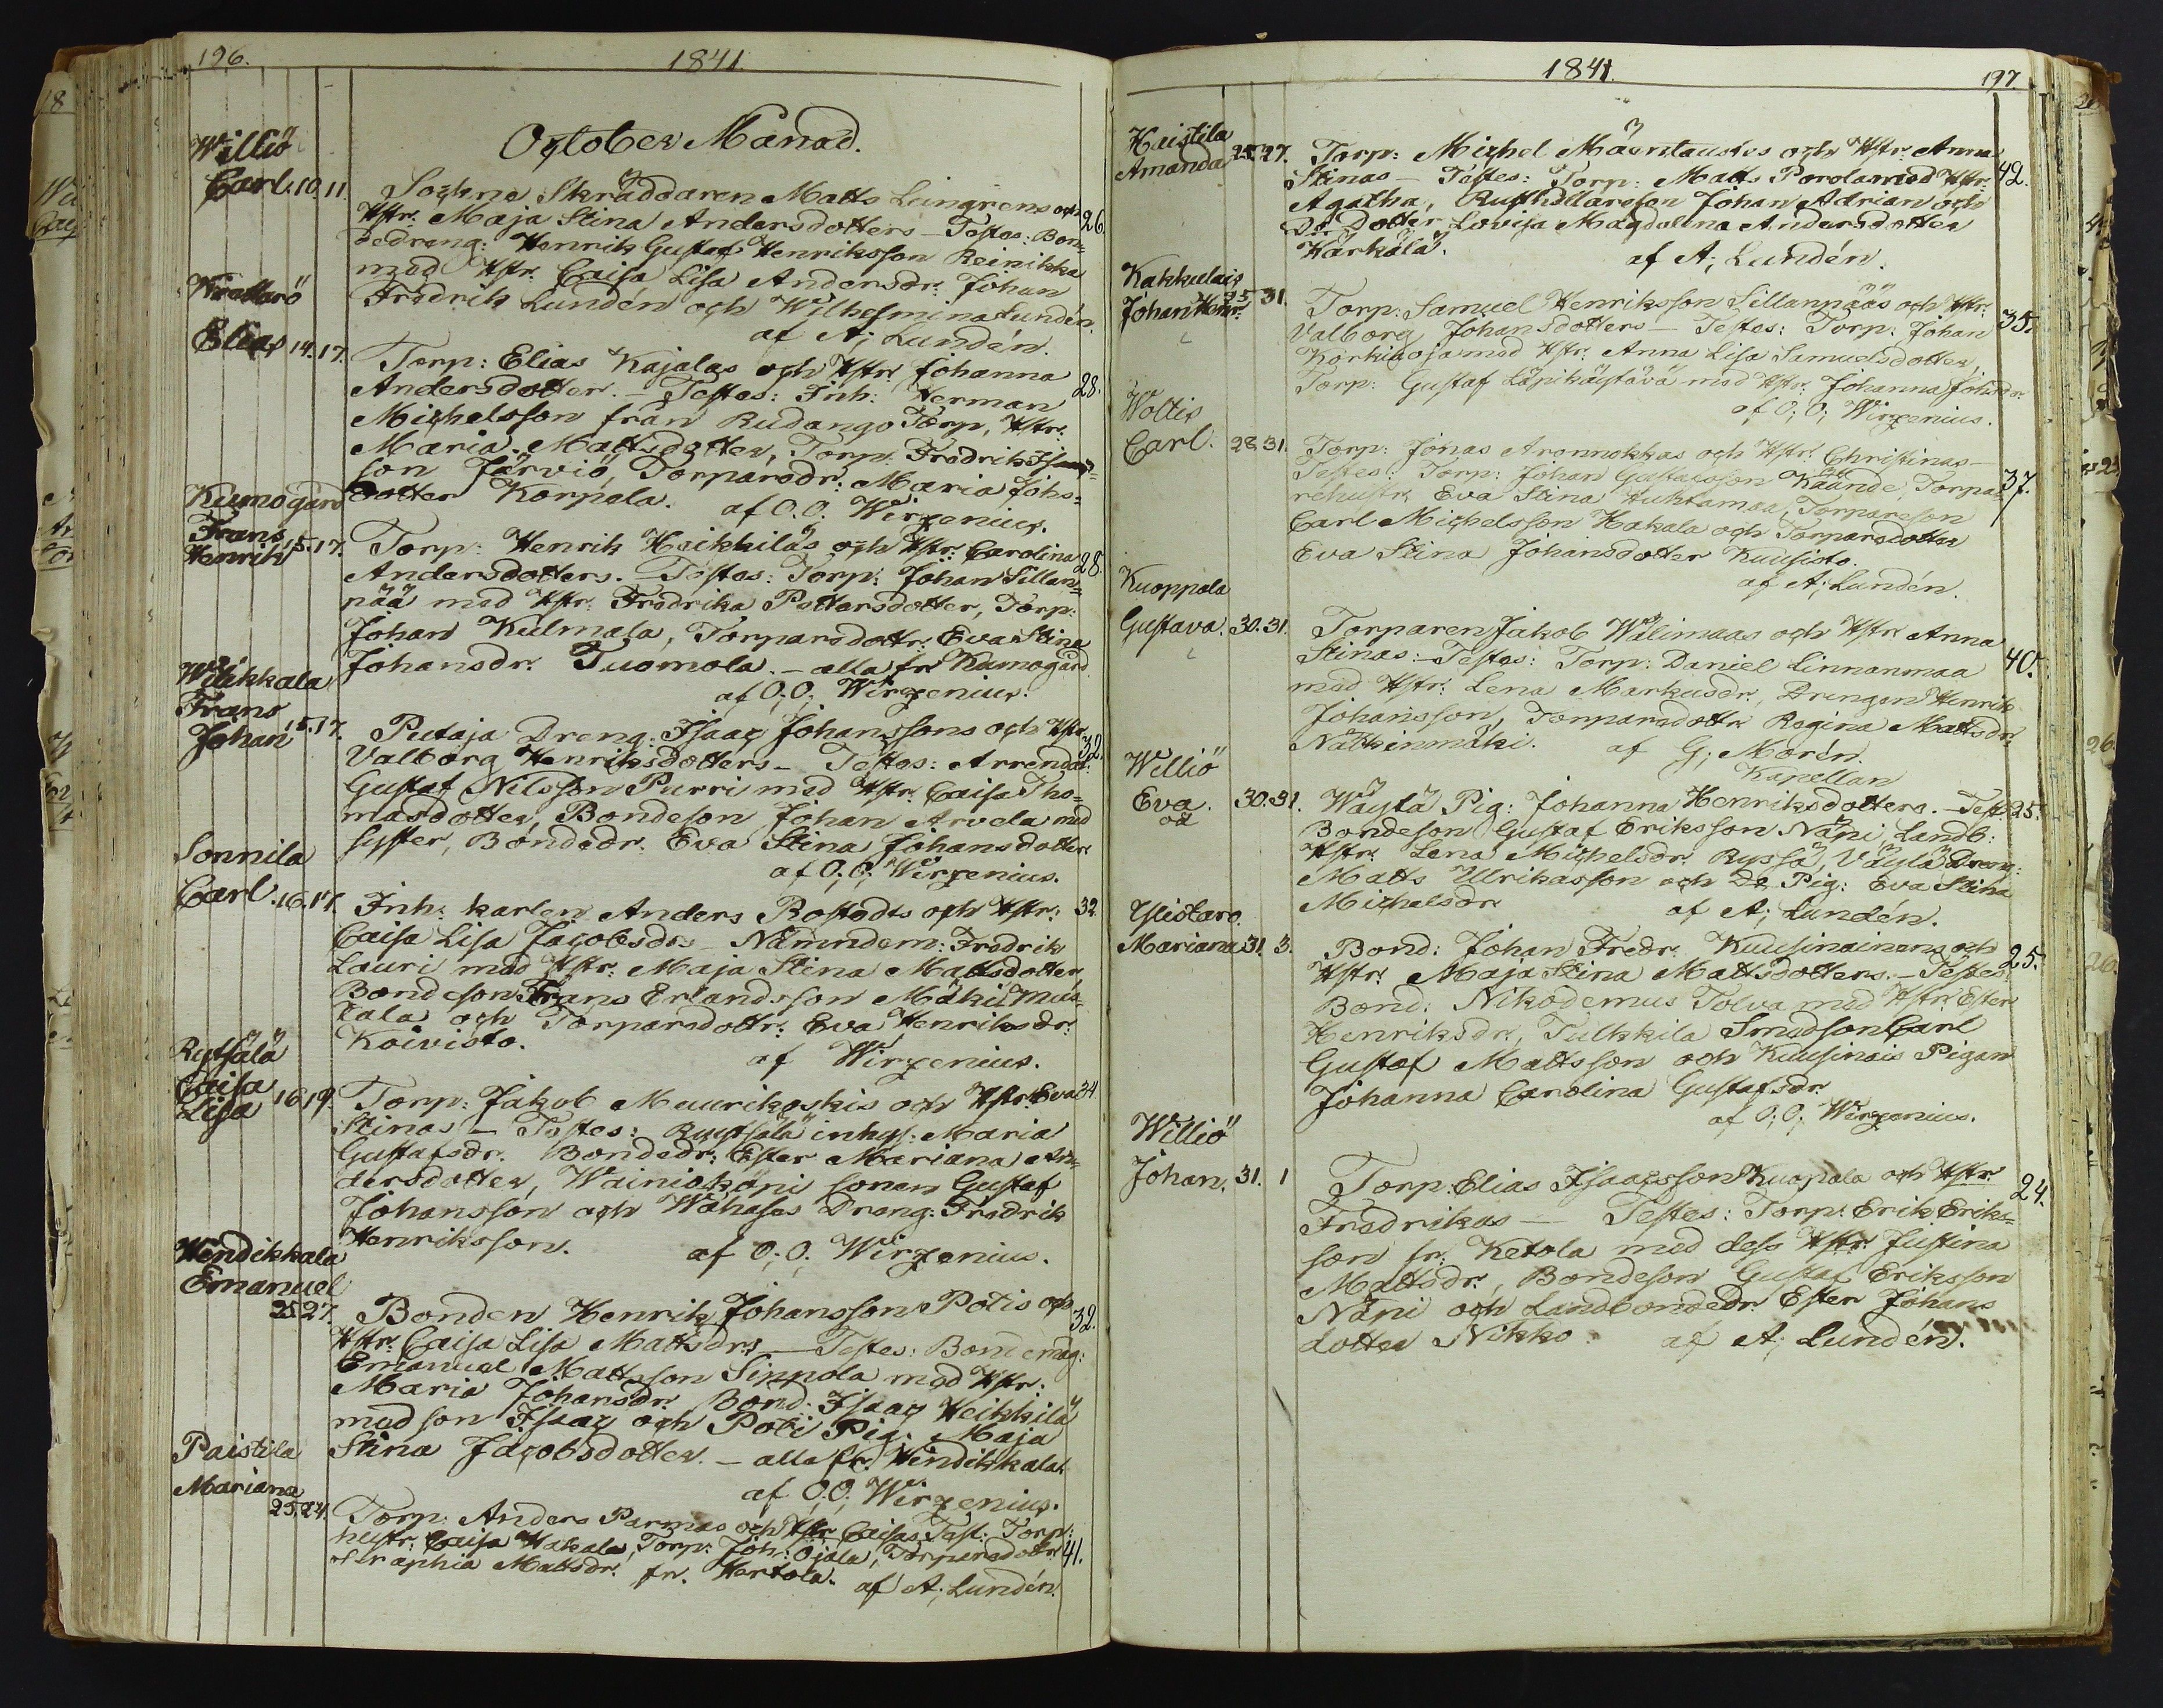 196.
1841.
October Månad.
Williö
Carl. 10. 11.
Sockne Skräddaren Matts Leingrens och
Hstr. Maja Stina Andersdotters – Testes: Bon= 26.
dedreng: Henrik Gustaf Henriksson Reinikka
med Hstr. Caisa Lisa Andersdr. Johan
Fredrik Lundén och Wilhelmina Lundén.
af A; Lundén.
Elias 14. 17.
Torp: Elias Kajalas och Hstr. Johanna
Andersdotter. – Testes: Inh: Herman 28.
Michelsson från Rudango Torp, Hstr.
Maria Mattsdotter, Torp. Fredrik
son Järviö, Torparedr. Maria Johs=
dotter Korpola. af O.O. Wirzenius.
Kumogård
Frans
Henrik 15. 17.
Torp: Henrik Heikkiläs och Hstr. Carolina
Andersdotters. – Testes: Torp: Johan Sillan= 28.
pää med Hstr. Fredrika Pettersdotter, Torp:
Johan Kulmala, Torparedottr. Eva Stina
Johansdr. Tuomola. – alla fr. Kumogård
af O;O; Wirzenius.
Wilikkala
Frans
Johan 15. 17.
Putaja Dreng: Isaac Johanssons och Hstr. 32.
Valborg Henriksdotters – Testes: Arrendat:
Gustaf Nilsson Purri med Hstr. Caisa Tho=
masdotter, Bondeson Johan Arvela med
syster, Bondedr. Eva Stina Johansdotter
af O;O; Wirzenius.
Sonnila
Carl. 16. 17.
Inh: karlen Anders Rostedts och Hstr: 32
Caisa Lisa Jacobsdrs – Nämndem: Fredrik
Lauri med Hstr. Maja Stina Mattsdotter
Bondeson Frans Erlandsson Mäki Mus=
tala och Torparedottr. Eva Henriksdr.
Koivisto. af Wirzenius.
Rytsälä
Caisa
Lisa 16. 19.
Torp: Jakob Maurikoskis och Hstr. Eva 34
Stinas – Testes: Ruytsälä inhys: Maria
Gustafsdr. Bondedr. Ester Mariana An=
dersdotter, Wainiokäni sonen Gustaf
Johansson och Wähases Dreng: Fredrik
Henriksson. af O;O; Wirzenius.
Hendikkala
Emanuel
25. 27.
Bonden Henrik Johansson Potis och 32.
Hstr. Caisa Lisa Mattsdrs – Testes: Bondemåg:
Emanuel Mattsson Sippola med Hstr:
Maria Johansdr. Bond: Isaac Heikkilä
med son Isaac och Poti Pig: Maja
Stina Jacobsdotter. – alla fr. Hindikkala.
af O;O; Wirzenius.
Paistila
Mariana
25. 24.
Torp: Anders Parmas och Hstr. Caisas. Test: Torp:
hustr: Caisa Hakala, Torp: Joh: Ojala, Torparedottr 41.
Seraphia Mattsdr. fr. Hartola. af A; Lundén.
1841.
197
Haistila
Amanda 27.
Torp: Michel Mäentaustes och Hstr. Anna
Stinas – Testes: Torp: Matts Porola med Hstr: 42.
Agatha, Rusthållareson Johan Adrian och
Do Dotter Lovisa Magdalena Andersdotter
Kärkälä. af A; Lundén.
Kakkulais
Johan Henr. 25 31.
Torp: Samuel Henriksson Sillanpääs och Hstr:
Valborg Johansdotters – Testes: Torp: Johan 35.
Korkiaoja med Hstr. Anna Lisa Samuelsdotter,
Torp: Gustaf Läpikäytävä med Hstr. Johanna Johsdr.
af O; O; Wirzenius.
Woltis
Carl. 28. 31.
Torp: Jonas Aronnokkas och Hstr. Christinas –
Testes: Torp: Johan Gustafsson Käände, Torpa= 37.
rehustr. Eva Stina Luhtamaa, Torpareson
Carl Michelsson Hakala och Torparedotter
Eva Stina Johansdotter Kuusisto.
af A; Lundén.
Kuoppala
Gustava. 30. 31.
Torparen Jakob Wälimaas och Hstr. Anna
Stinas: – Testes: Torp: Daniel Linnanmaa 40.
med Hstr. Lena Markusdr., Drengen Henrik
Johansson, Torparedotter Regina Mattsdr.
Nätkinmäki. af G; Morén.
Kapellan
Williö
Eva. 30. 31.
oä
Wäylä Pig: Johanna Henriksdotters. – Test: 25.
Bondeson Gustaf Eriksson Näpi, Landb:
Hstr. Lena Michelsdr. Ryssä, Väylä Dreng:
Matts Ulrikasson och Do Pig: Eva Stina
Michelsdr. af A; Lundén.
Ylistaro
Mariana 31. 3.
Bond: Johan Fredr. Kuusinainens och
Hstr. Maja Stina Mattsdotters. – Testes: 25.
Bond: Nikodemus Tolva med Hstr. Ester
Henriksdr., Tulkkila Smedson Carl
Gustaf Mattsson och Kuusinais Pigan
Johanna Carolina Gustafsdr.
af O; O; Wirzenius.
Williö
Johan. 31. 1
Torp: Elias Isaacsson Kuopala och Hstr. 24.
Fredrikas – Testes: Torp: Erik Eriks=
son fr. Ketola med dess Hstr. Justina
Mattsdr., Bondeson Gustaf Eriksson
Näpi och Landbondedr. Ester Johans
dotter Nikko. af A; Lundén.